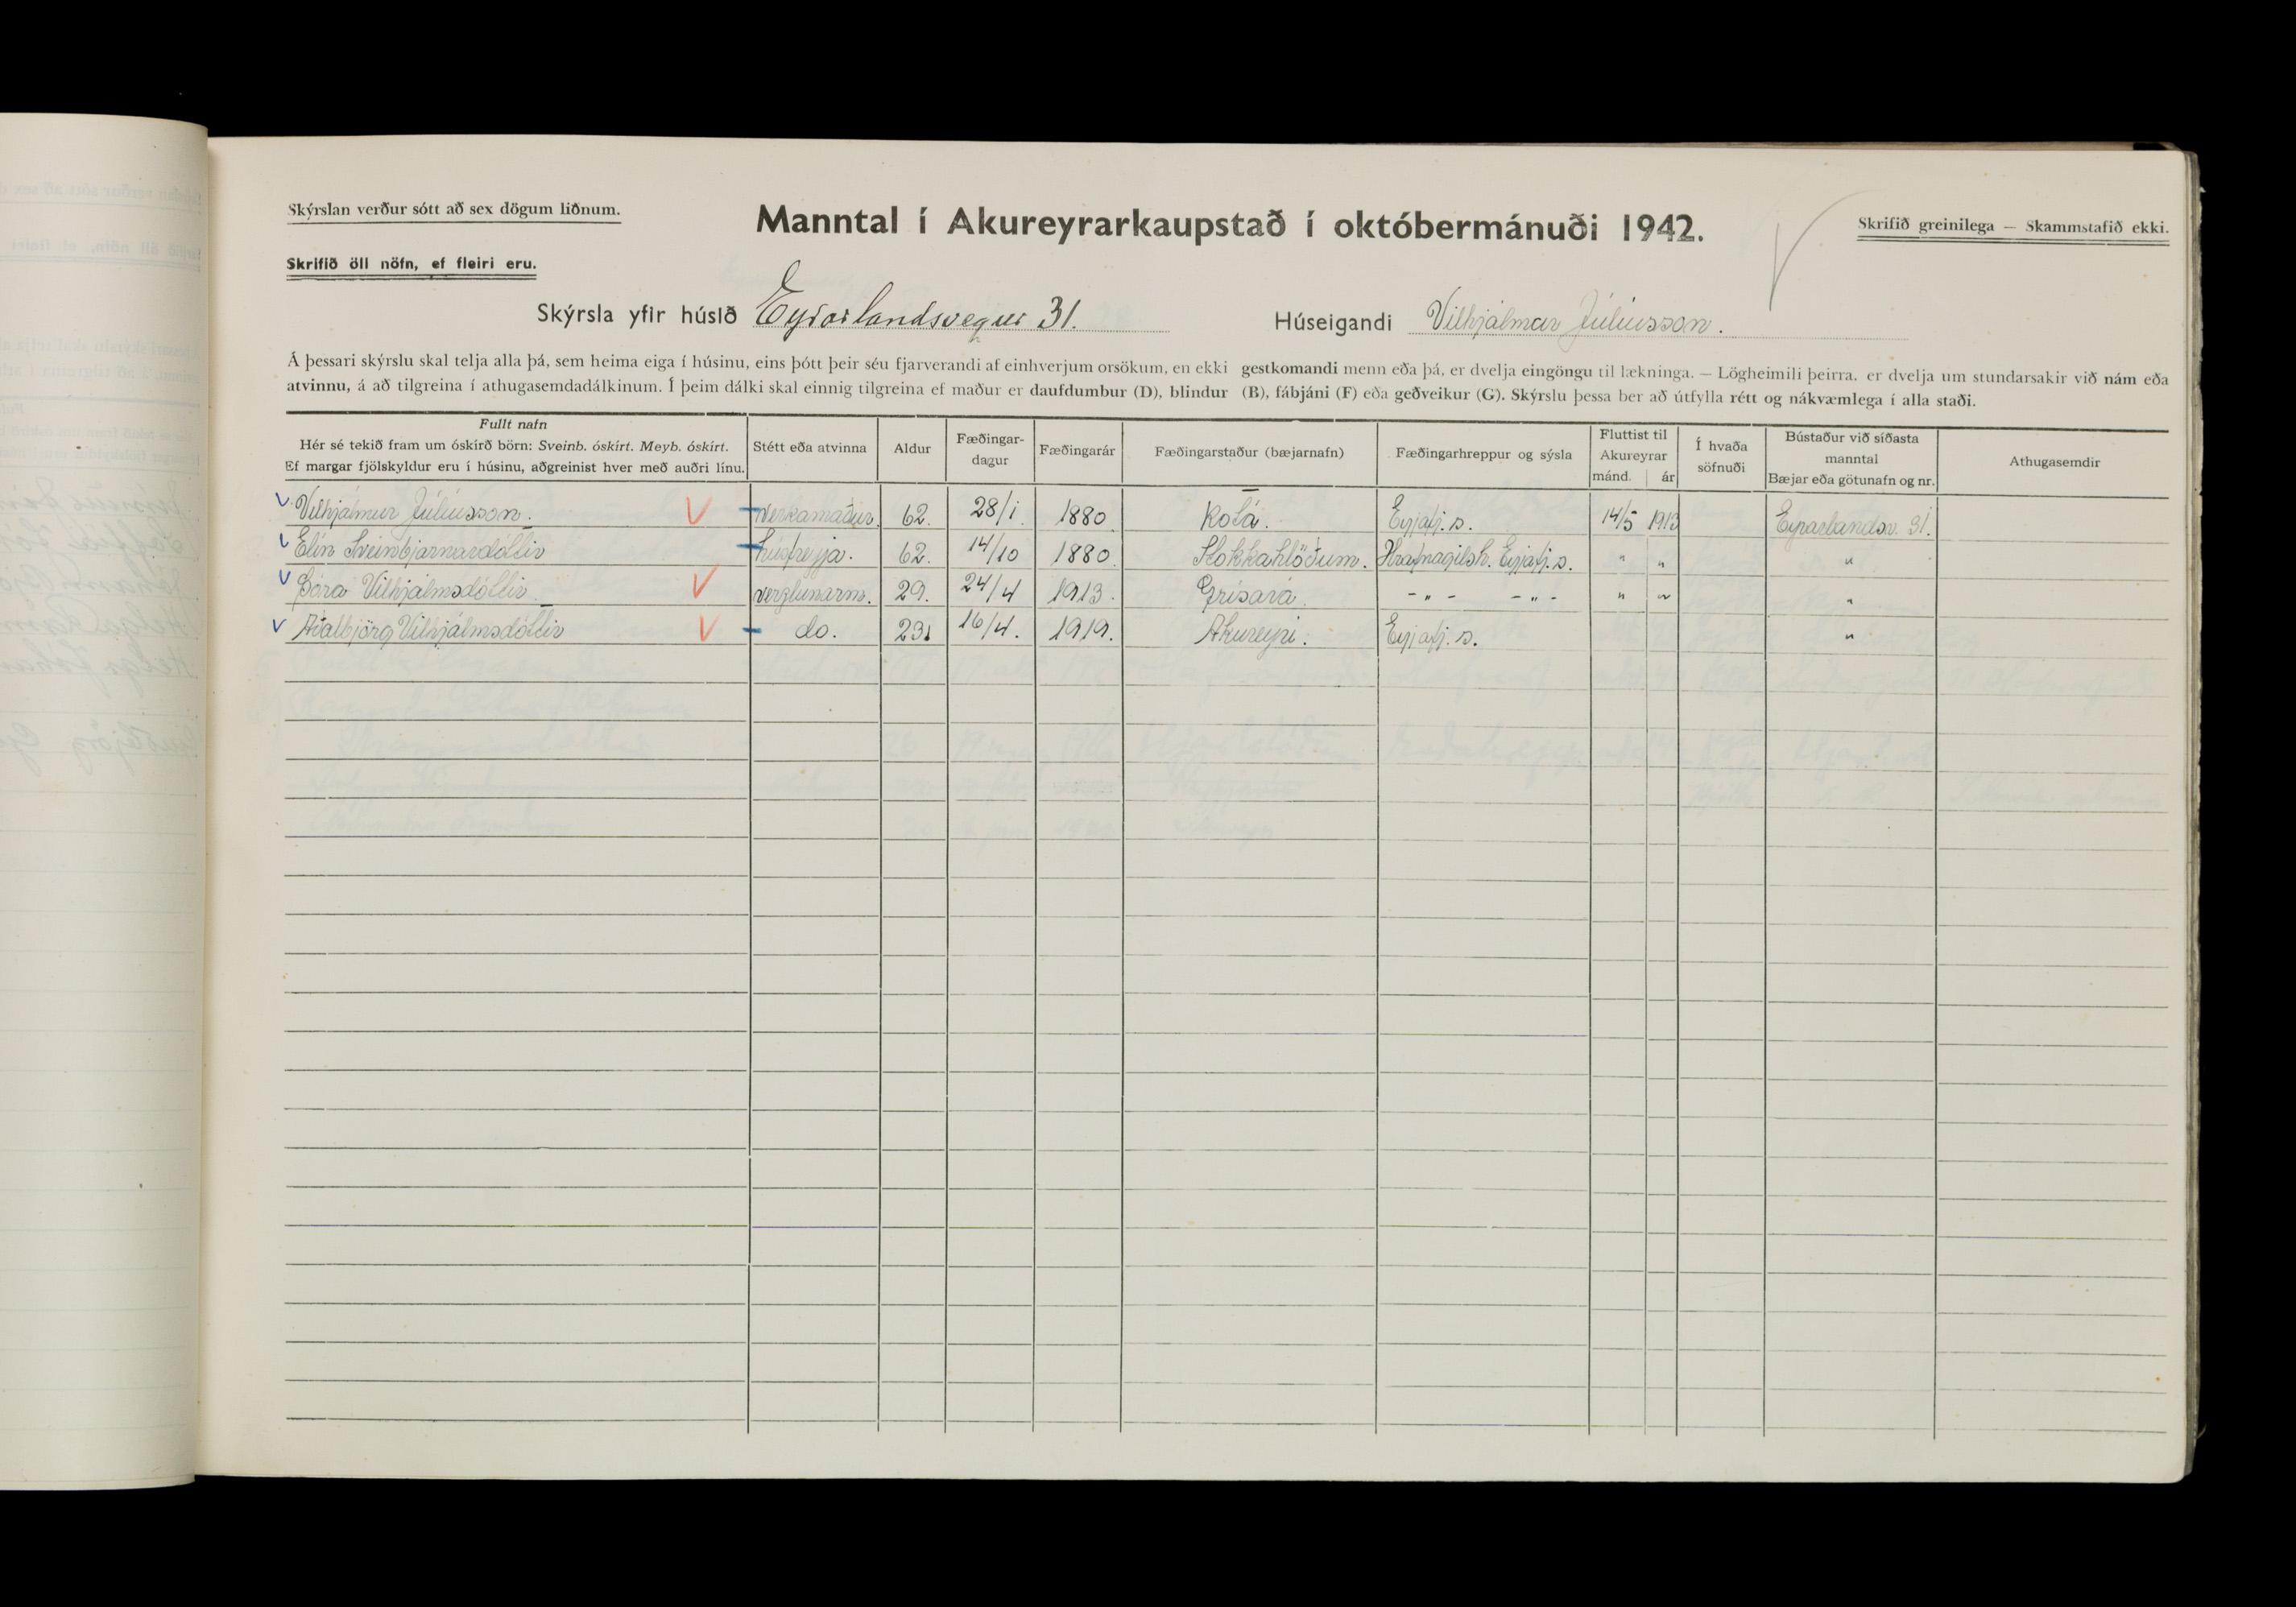 Skýrslan verður sótt að sex dögum liðnum.
Manntal í Akureyrarkaupstað í októbermánuði 1942.
Skrifið greinilega — Skammstafið ekki.
Skrifið öll nöfn, ef fleiri eru.
Skýrsla yfir húsið Eyrarlandsvegur 31. Húseigandi Vilhjálmur Júlíusson.
Á þessari skýrslu skal telja alla þá, sem heima eiga í húsinu, eins þótt þeir séu fjarverandi af einhverjum orsökum, en ekki gestkomandi menn eða þá, er dvelja eingöngu til lækninga. — Lögheimili þeirra. er dvelja um stundarsakir við nám eða
atvinnu, á að tilgreina í athugasemdadálkinum. Í þeim dálki skal einnig tilgreina ef maður er daufdumbur (D), blindur (B), fábjáni (F) eða geðveikur (G). Skýrslu þessa ber að útfylla rétt og nákvæmlega í alla staði.
Fullt nafn
Hér sé tekið fram um óskírð börn: Sveinb. óskírt. Meyb. óskírt.
Ef margar fjölskyldur eru í húsinu, aðgreinist hver með auðri línu.
Stétt eða atvinna
Aldur
Fæðingar-
dagur
Fæðingarár
Fæðingarstaður (bæjarnafn)
Fæðingarhreppur og sýsla
Fluttist til
Akureyrar
mánd. ár
Í hvaða
söfnuði
Bústaður við síðasta
manntal
Bæjar eða götunafn og nr.
Athugasemdir
Vilhjálmur Júlíusson. verkamaður. 62. 28/1. 1880. Kotá. Eyjafj.s. 14/5 1913 Eyrarlandsv. 31.
Elín Sveinbjarnardóttir húsfreyja. 62. 14/10 1880. Stokkahlöðum. Hrafnagilsh. Eyjafj.s. " " "
Þóra Vilhjálmsdóttir. verzlunarm. 29. 24/4 1913. Grísará. -"- -"- " " "
Aðalbjörg Vilhjálmsdóttir do. 23. 16/4. 1919. Akureyri. Eyjafj.s. "